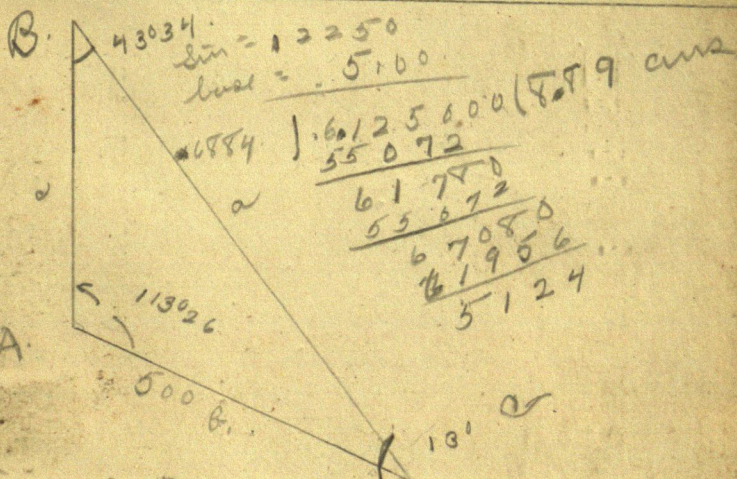 B. 43°34
Sin = .12250
base = .5100
.6884 ) .6.125000 ( 8.89 ans
55072
61780
55072
67080
61956
5124
a
113°26
A.
500 b.